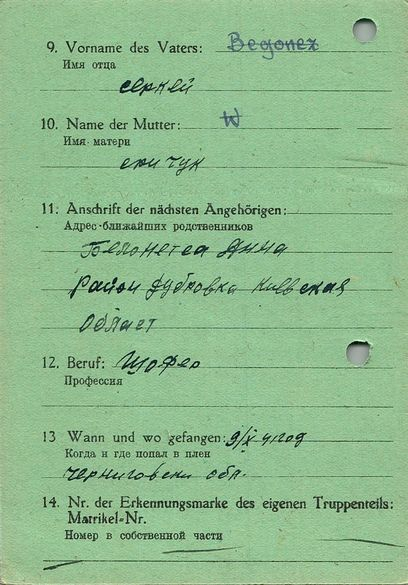 9. Vorname des Vaters: Begonez
Имя отца
сергей
10. Name der Mutter: W
Имя матери
11. Anschrift der nächsten Angehörigen:
Адрес ближайших родственников
Анна
Район Дубровка Киевская
Област
12. Beruf: Шофер
Профессия
13 Wann und wo gefangen: 9/X 41год
Когда и где попал в плен
Черниговски обл.
14. Nr. der Erkennungsmarke des eigenen Truppenteils:
Matrikel-Nr.
Номер в собственной части